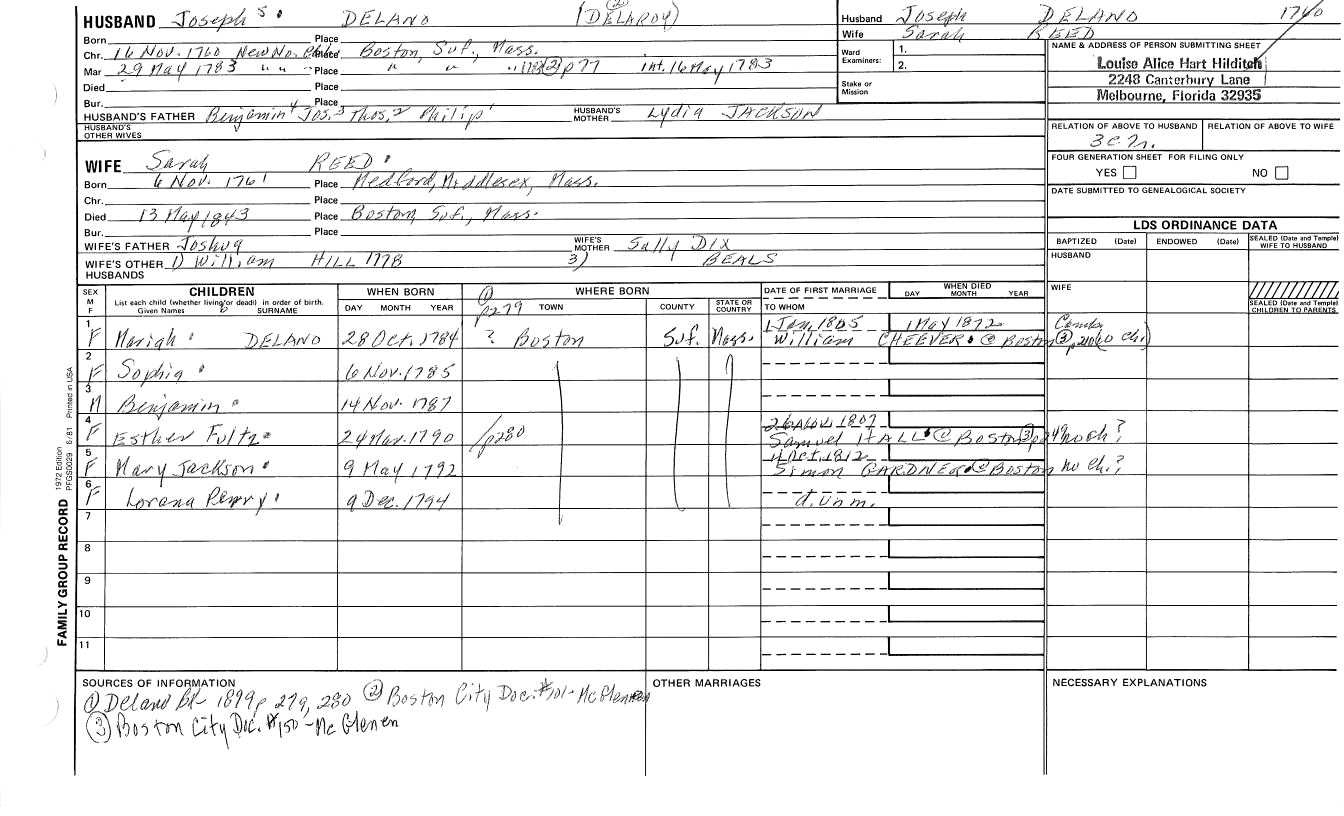 HUSBAND Joseph 5 DELANO (DELAROY)
Born Place
Chr. 16 Nov. 1760 New No. Place Boston, Suf., Mass.
Mar 29 May 1783 " " Place " " " p 77 int. 16 May 1783
Died Place
Bur. Place
HUSBAND'S FATHER Benjamin 4 Jos. 3 Thos. 2 Philip 1 HUSBAND'S MOTHER Lydia JACKSON
HUSBAND'S OTHER WIVES
WIFE Sarah REED
Born 6 Nov. 1761 Place Medford, Middlesex, Mass.
Chr. Place
Died 13 May 1843 Place Boston, Suf., Mass.
Bur. Place
WIFE'S FATHER Joshua WIFE'S MOTHER Sally DIX
WIFE'S OTHER HUSBANDS 1) William HILL 1778 3) BEALS
Husband Joseph DELANO 1760
Wife Sarah REED
Ward Examiners: 1.
2.
Stake or Mission
NAME & ADDRESS OF PERSON SUBMITTING SHEET
Louise Alice Hart Hilditch
2248 Canterbury Lane
Melbourne, Florida 32935
RELATION OF ABOVE TO HUSBAND RELATION OF ABOVE TO WIFE
FOUR GENERATION SHEET FOR FILING ONLY
YES NO
DATE SUBMITTED TO GENEALOGICAL SOCIETY
LDS ORDINANCE DATA
BAPTIZED (Date) ENDOWED (Date) SEALED (Date and Temple) WIFE TO HUSBAND
HUSBAND
WIFE
SEALED (Date and Temple) CHILDREN TO PARENTS
SEX M F CHILDREN WHEN BORN WHERE BORN DATE OF FIRST MARRIAGE WHEN DIED
List each child (whether living or dead) in order of birth. Given Names SURNAME DAY MONTH YEAR TOWN COUNTY STATE OR COUNTRY TO WHOM DAY MONTH YEAR
① p279
1 F Mariah DELANO 28 Oct. 1784 ? Boston Suf. Mass. 1 Jan. 1805 1 May 1872 William CHEEVER @ Boston ③
2 F Sophia 6 Nov. 1785
3 M Benjamin 14 Nov. 1787
4 F Esther Fultz 24 Mar. 1790 p280 1807 Samuel HALL @ Boston ③ no ch?
5 F Mary Jackson 9 May 1792 Oct. 1812 Simon GARDNER @ Boston no ch.?
6 F Lorana Perry 9 Dec. 1794 d. unm.
7
8
9
10
11
FAMILY GROUP RECORD 1972 Edition 6/81 Printed in USA
PFGS0029
SOURCES OF INFORMATION OTHER MARRIAGES NECESSARY EXPLANATIONS
① Delano Bk 1899 p 279, 280 ② Boston City Doc. #101 - McGlenen
③ Boston City Doc. #150 - McGlenen